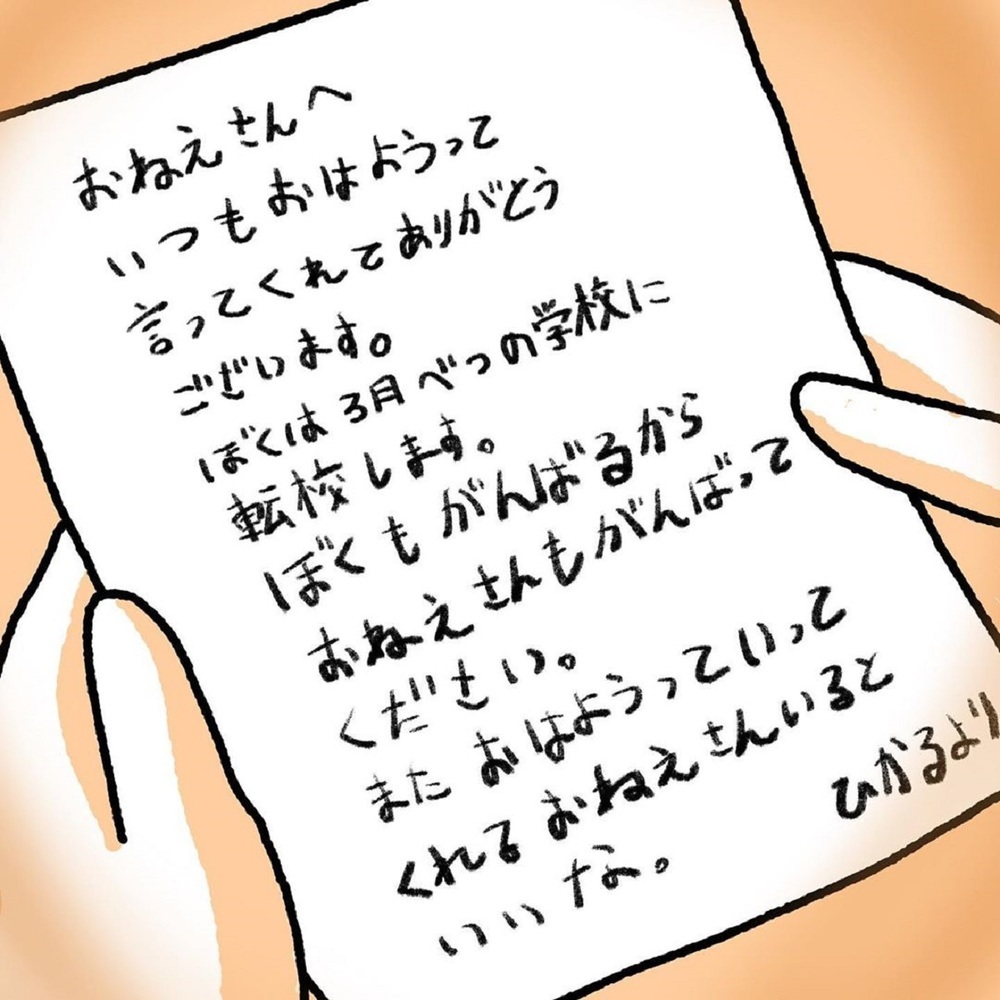 おねえさんへ
いつもおはようって
言ってくれてありがとう
ございます。
ぼくは3月べつの学校に
転校します。
ぼくもがんばるから
おねえさんもがんばって
ください。
またおはようっていって
くれるおねえさんいると
いいな。
ひかるより